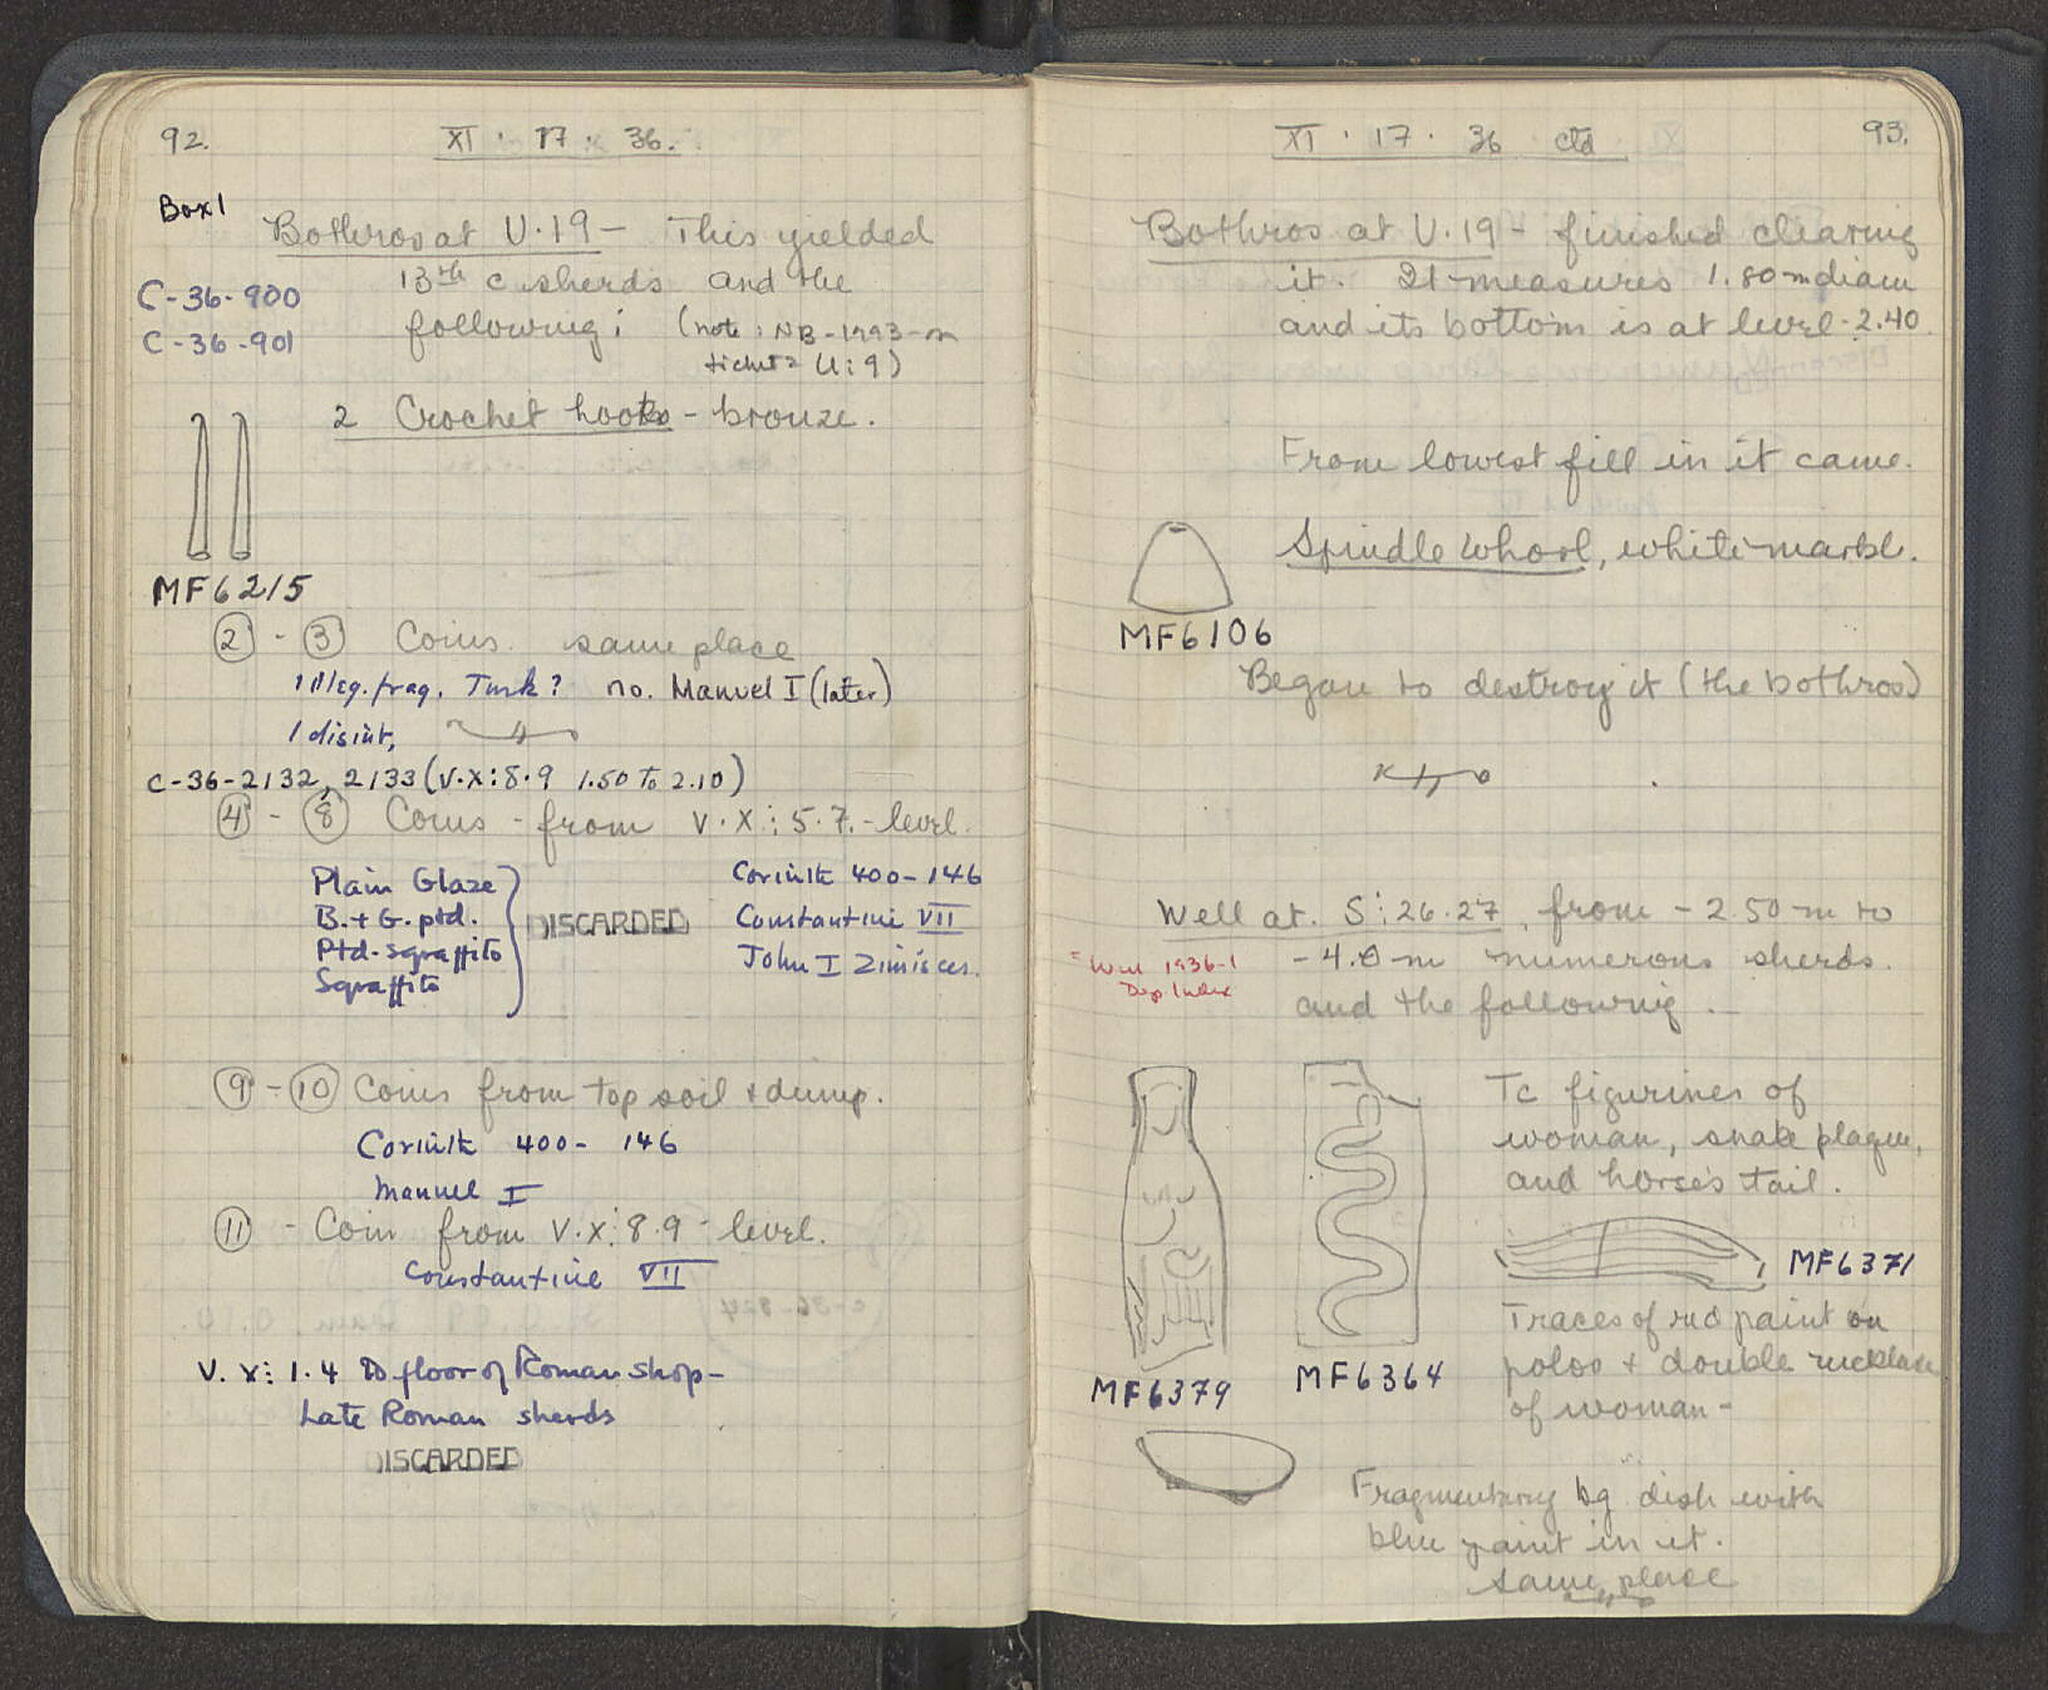 92.
XI · 17 · 36.
Box 1
Bothros at U.19 - This yielded
C-36-900
13th c sherds and the
C-36-901
following: (note: NB-1993-on
ticket = U:9)
2 Crochet hooks - bronze.
MF6215
② - ③ Coins. same place
1 illeg. frag. Turk? no. Manuel I (later)
1 disint,
C-36-2132, 2133 (V.X:8.9 1.50 to 2.10)
④ - ⑧ Coins - from V.X:5.7.-level.
Plain Glaze
B.+G. ptd.
Ptd-sgraffito
Sgraffito
DISCARDED
Corinth 400-146
Constantine VII
John I Zimisces.
⑨ - ⑩ Coins from top soil + dump.
Corinth 400- 146
Manuel I
⑪ - Coin from V.X:8.9 - level.
Constantine VII
V.X: 1.4 to floor of Roman shop-
Late Roman sherds
DISCARDED
XI · 17 · 36 ctd
93.
Bothros at U.19 - finished clearing
it. It measures 1.80 m diam
and its bottom is at level -2.40.
From lowest fill in it came.
Spindle Whorl, white marbl.
MF6106
Began to destroy it (the bothros)
Well at. S:26.27, from -2.50 m to
= Well 1936-1
Dep. Index
-4.0 m numerous sherds.
and the following.-
Tc figurines of
woman, snake plaque,
and horse's tail.
MF6371
Traces of red paint on
polos + double necklace
of woman-
MF6379
MF6364
Fragmentary bg dish with
blue paint in it.
same place